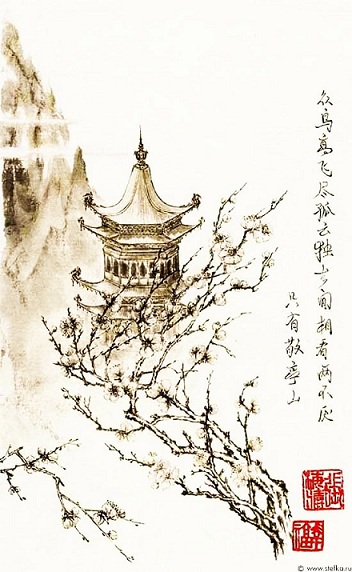 众鸟高飞尽孤云独去闲相看两不厌
只有敬亭山
© www.stelka.ru